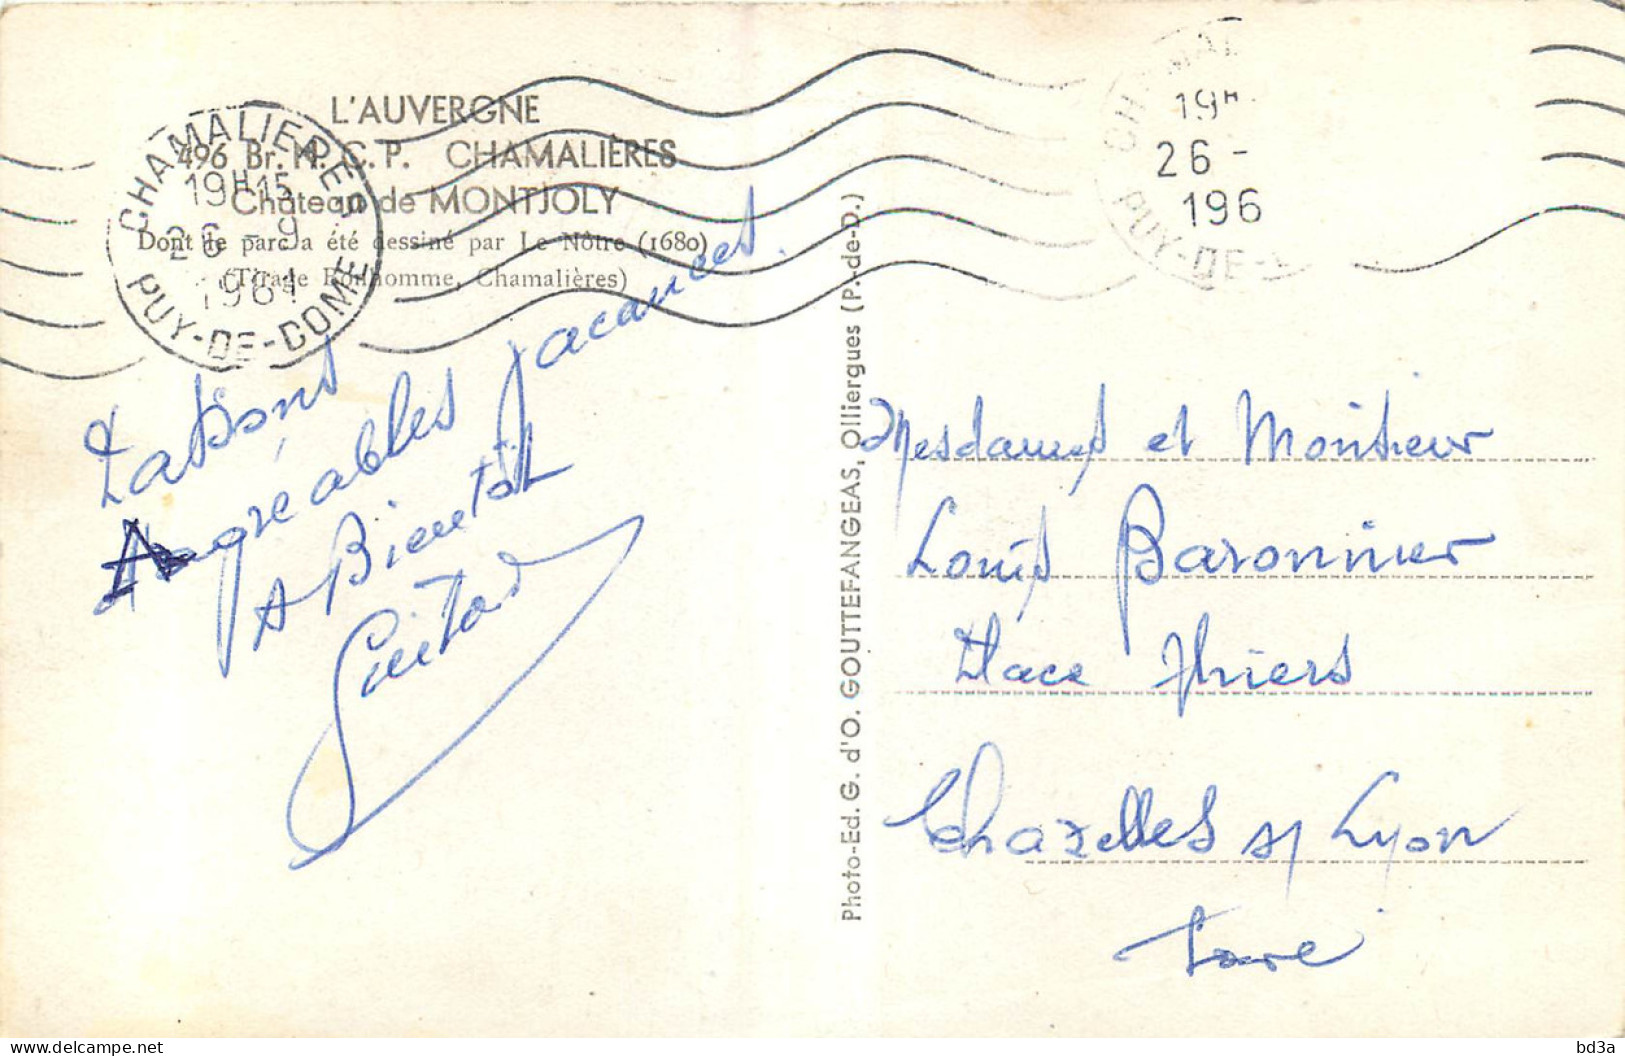 L'AUVERGNE
496 Br. M. C. P. CHAMALIÈRES
Château de MONTJOLY
Dont le parc a été dessiné par Le Nôtre (1680)
(Tirage Bonhomme, Chamalières)
CHAMALIERES
19H15
26 - 9
1961
PUY-DE-DOME
CHAMAL
19H
26 -
196
PUY-DE-D
agréables vacances.
A Bientôt
Photo-Ed. G. d'O. GOUTTEFANGEAS, Olliergues (P.-de-D.)
Mesdames et Monsieur
Louis Baronnier
Place Thiers
Chazelles s/ Lyon
Loire
bd3a